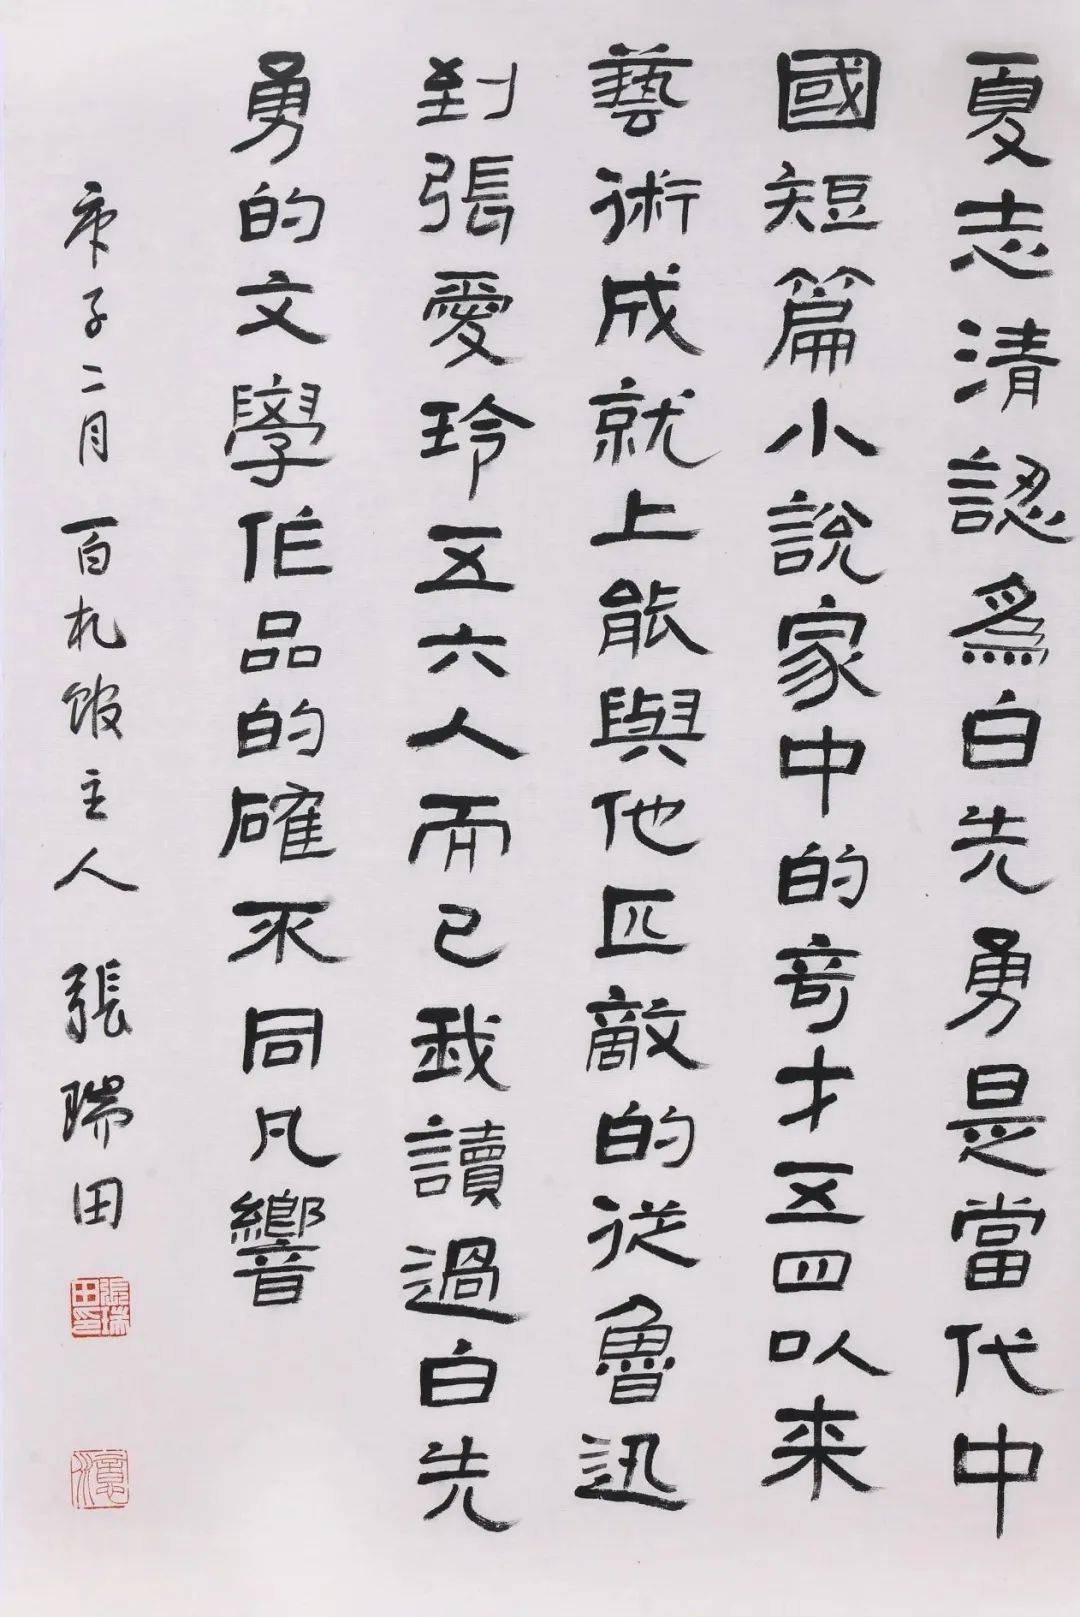 夏志清認為白先勇是當代中
國短篇小說家中的奇才五四以来
藝術成就上能與他匹敵的從魯迅
到張愛玲五六人而已我讀過白先
勇的文學作品的確不同凡響
庚子二月百札館主人張瑞田
張瑞田印